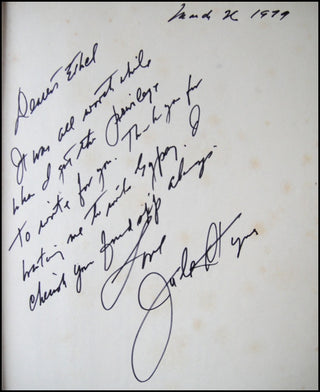 March 21 1979
Dearest Ethel
It was all worth while
when I got the privilege
to write for you. Thank you for
wanting me to write Gypsy. I
cherish your friendship always.
Love
Jule Styne